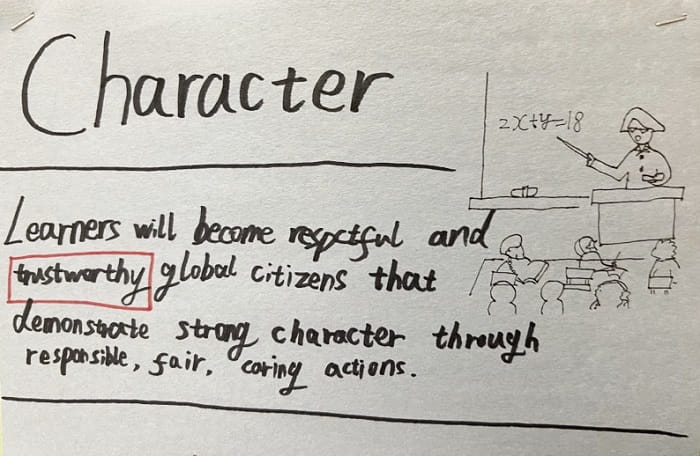 Character
2x+y=18
Learners will become respctful and
trustworthy global citizens that
demonstrate strong character through
responsible, fair, caring actions.